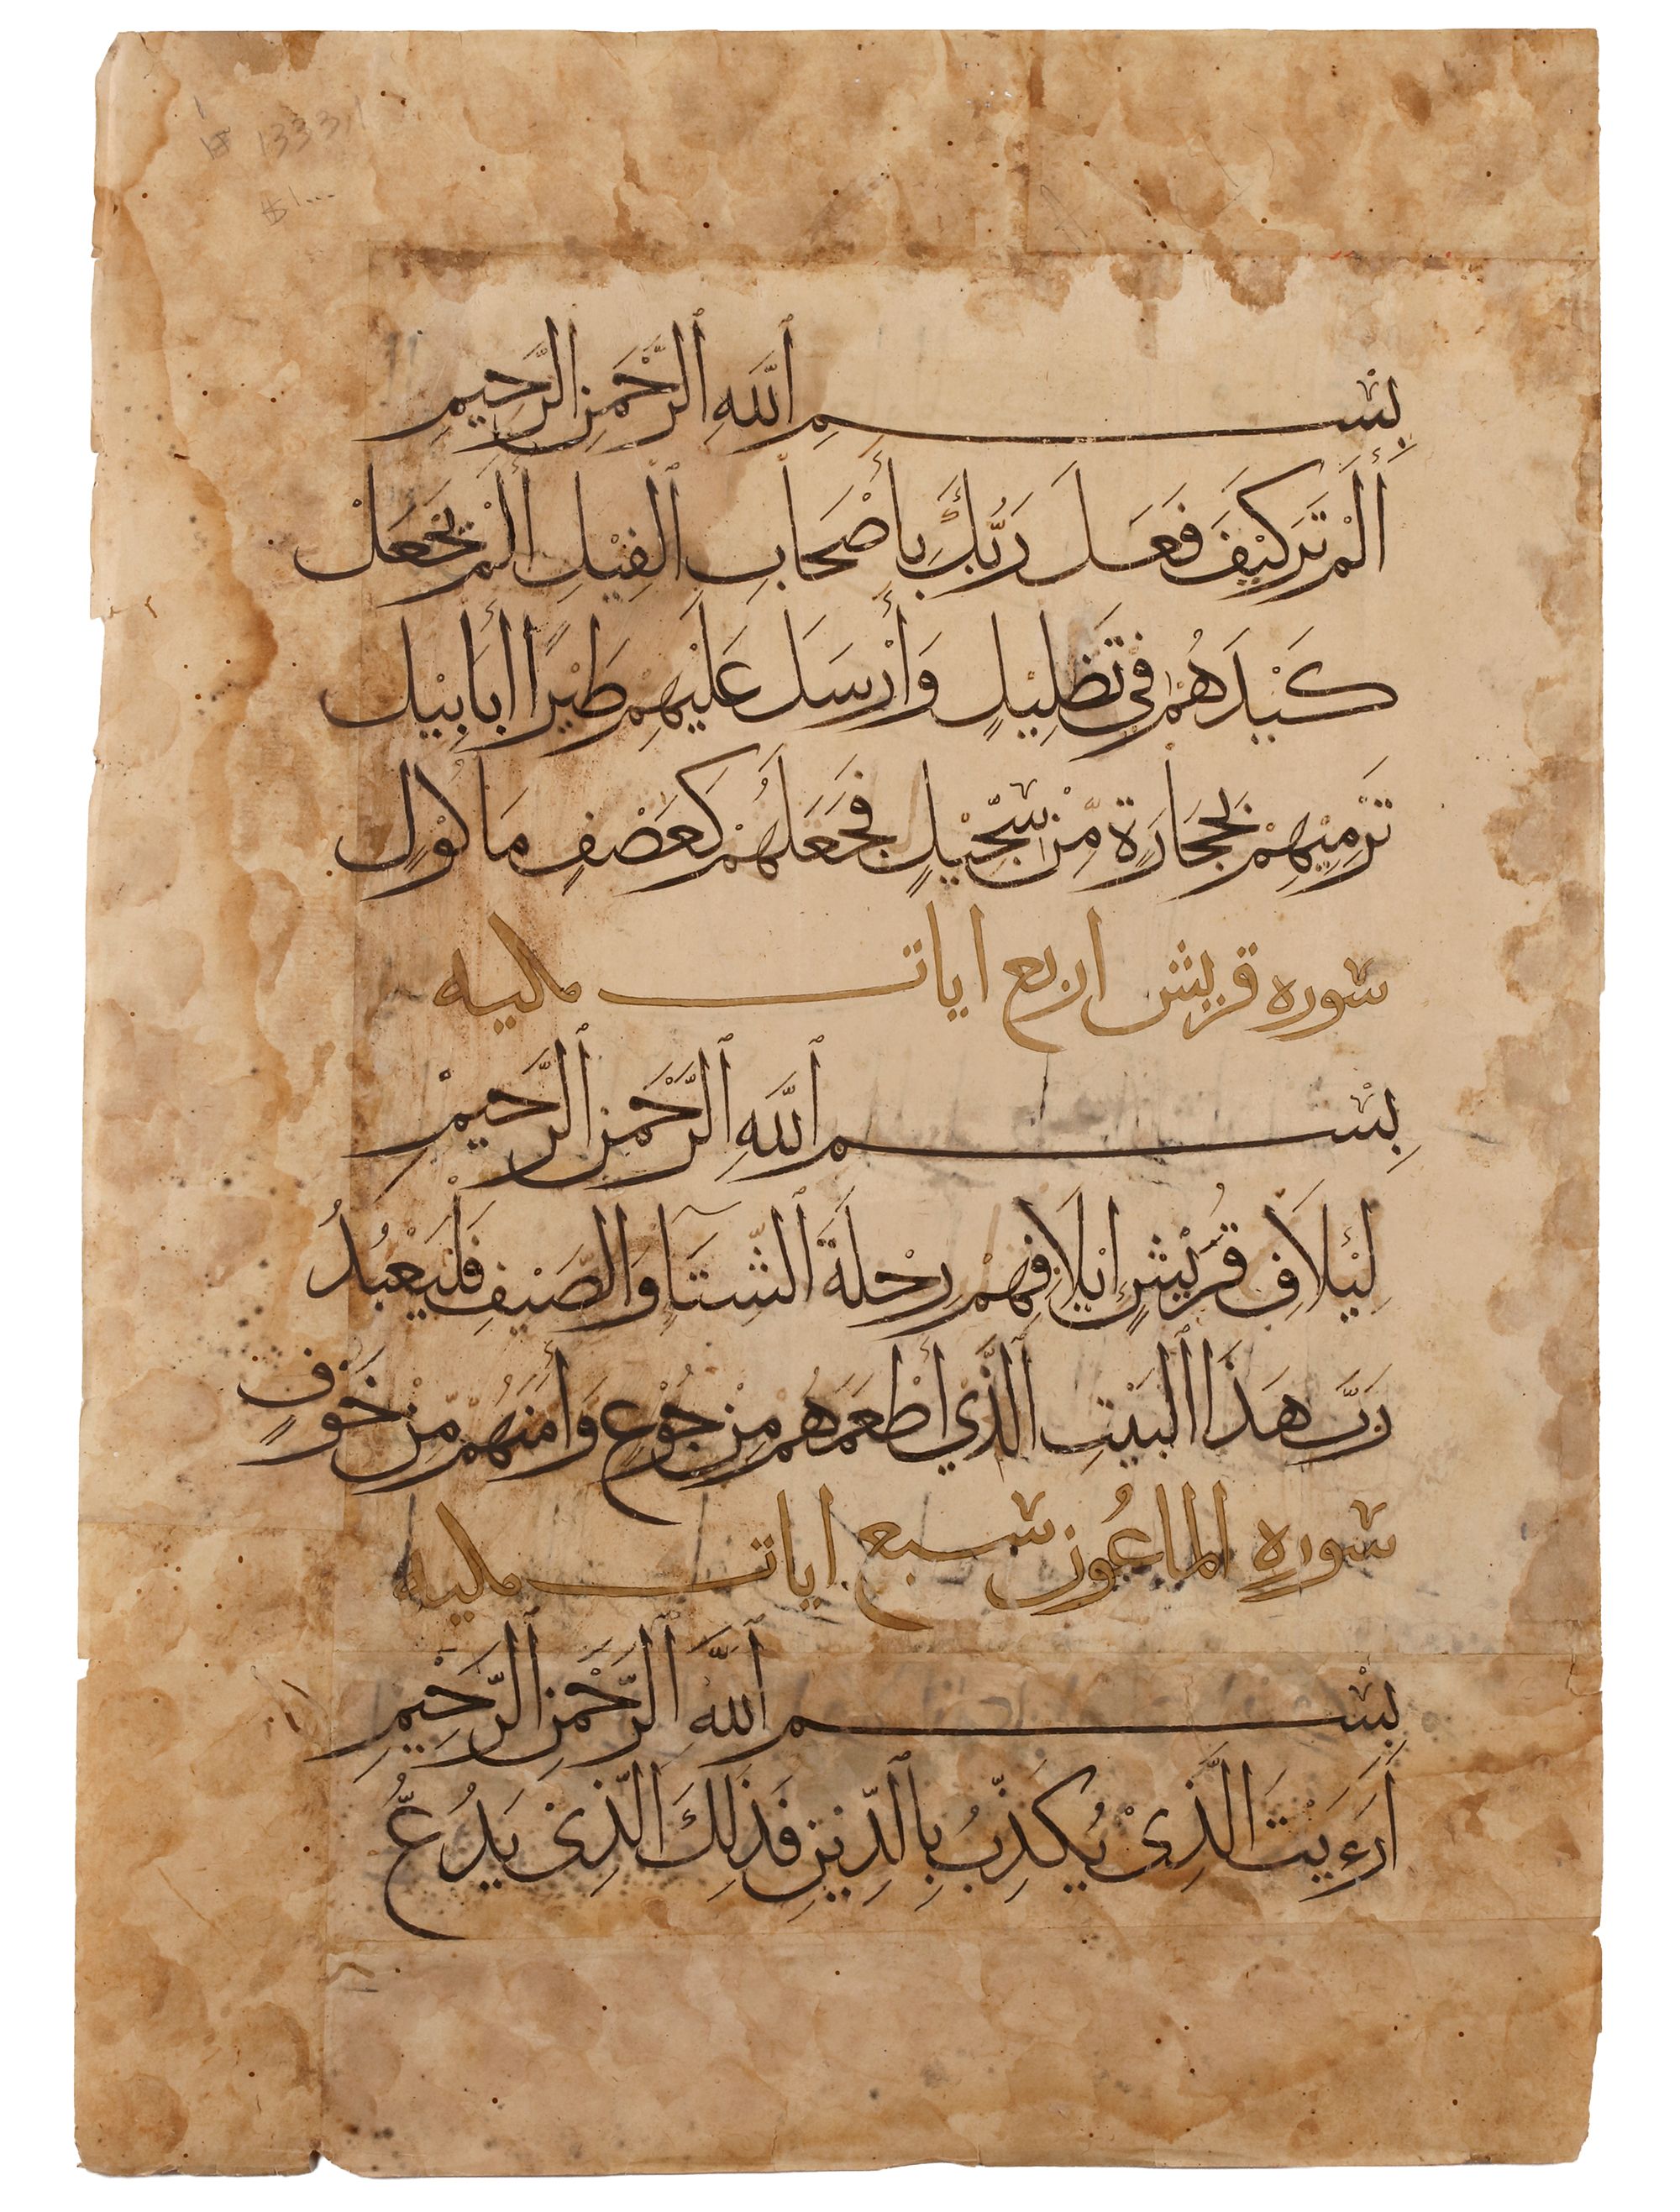 بِسْمِ ٱللَّهِ ٱلرَّحْمَنِ الرَّحِيمِ
أَلَمْ تَرَ كَيْفَ فَعَلَ رَبُّكَ بِأَصْحَابِ ٱلْفِيْلِ أَلَمْ يَجْعَلْ
كَيْدَهُمْ فِي تَضْلِيْلٍ وَأَرْسَلَ عَلَيْهِمْ طَيْرًا أَبَابِيْلَ
تَرْمِيْهِمْ بِحِجَارَةٍ مِّنْ سِجِّيْلٍ فَجَعَلَهُمْ كَعَصْفٍ مَاكُوْلٍ
سوره قريش اربع ايات مكيه
بِسْمِ ٱللَّهِ ٱلرَّحْمَنِ ٱلرَّحِيمْ
لِئْلَافِ قُرَيْشٍ إِيْلَافِهِمْ رِحْلَةَ ٱلشِّتَآءِ وَالصَّيْفِ فَلْيَعْبُدُ
رَبَّ هَذَا ٱلْبَيْتِ ٱلَّذِي أَطْعَمَهُمْ مِنْ جُوْعٍ وَأَمَنَهُمْ مِّنْ خَوْفٍ
سورهِ الماعُون سبع ايات مكيه
بِسْمِ ٱللَّهِ ٱلرَّحْمَنِ ٱلرَّحِيمِ
أَرَءَيْتَ الَّذِىْ يُكَذِّبُ بِٱلدِّيْنِ فَذَلِكَ الَّذِىْ يَدُعُّ